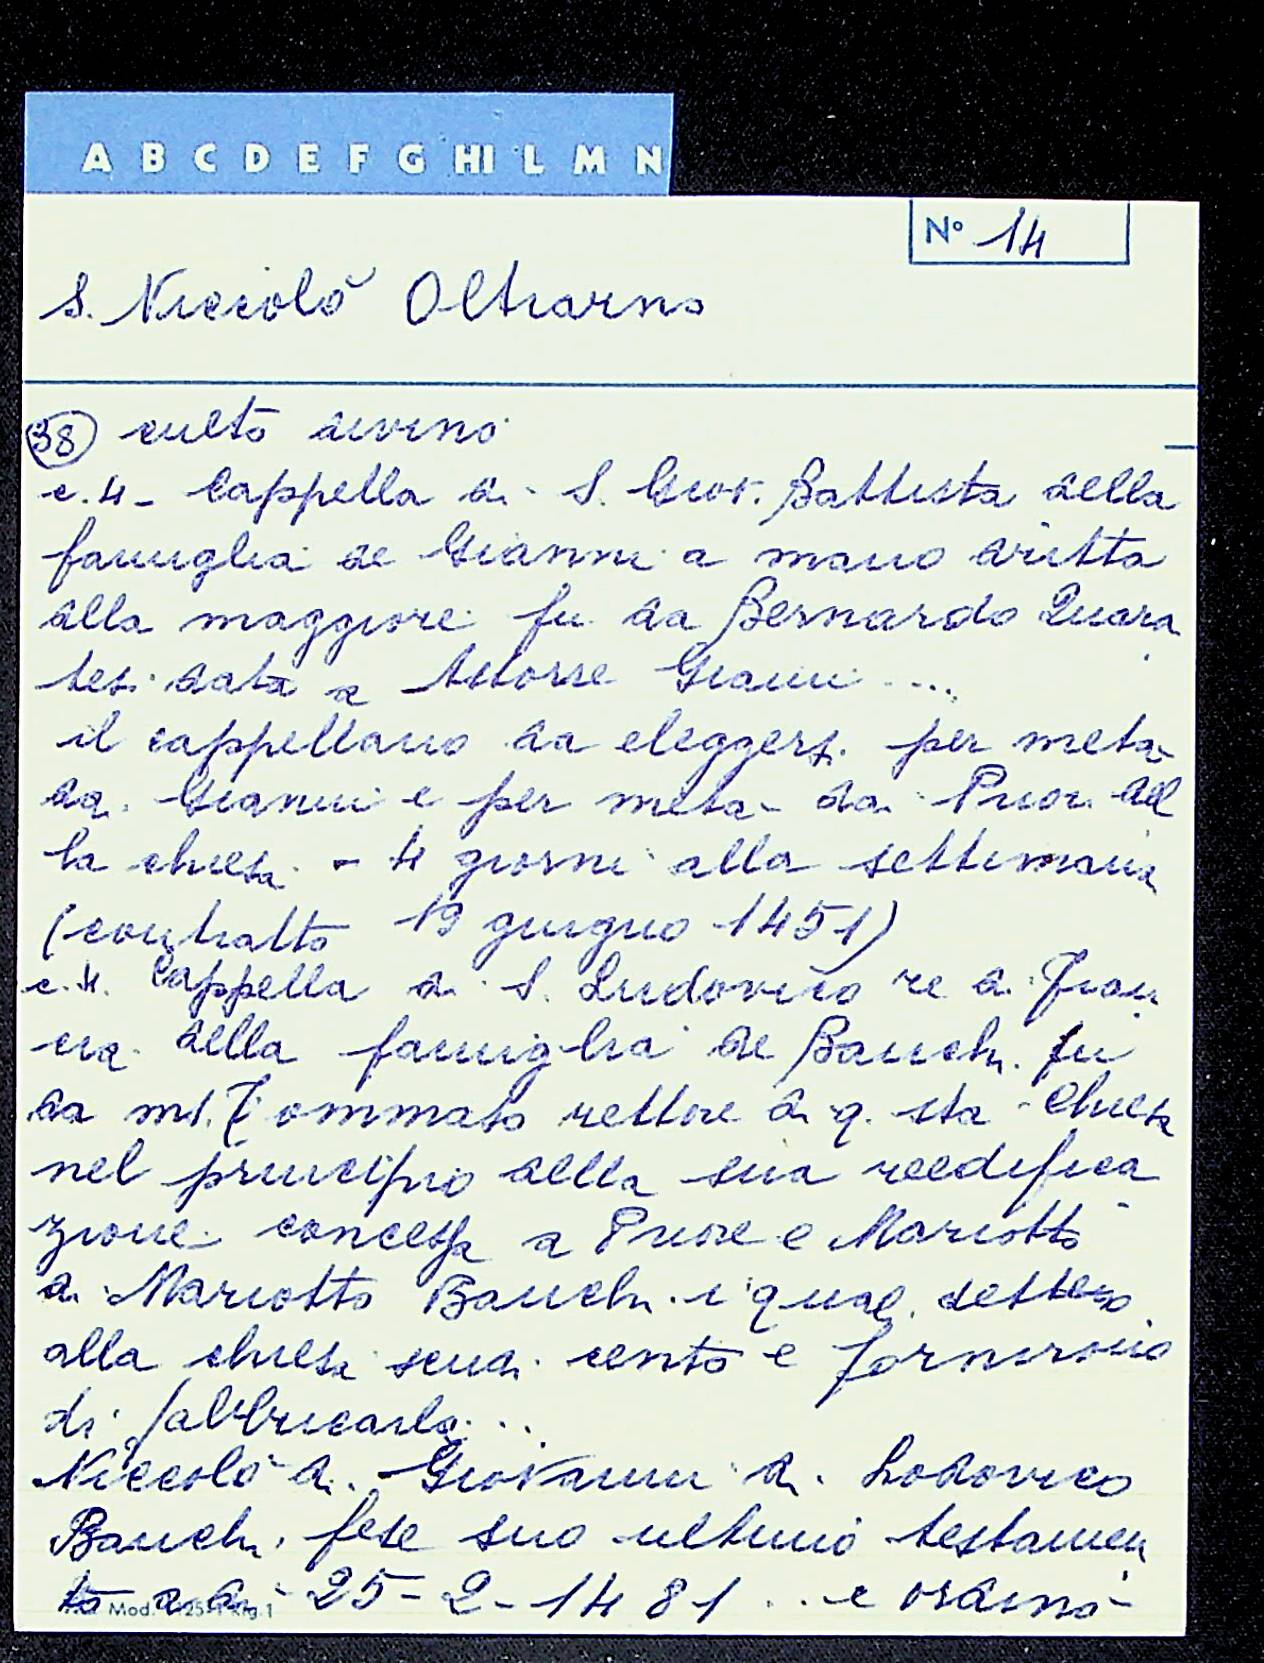 A B C D E F G HI L M N
N° 14
S. Niccolò Oltrarno
38 culto divino
c. 4 - Cappella di S. Giov. Battista della
famiglia de Gianni a mano dritta
alla maggiore fu da Bernardo Quara
tesi data a Astorre Gianni ....
il cappellano da eleggersi per metà
da Gianni e per metà dai Priori del
la chiesa - 4 giorni alla settimana
(contratto 19 giugno 1451)
c. 4. Cappella di S. Ludovico re di Fran
cia della famiglia de Banchi fu
da ms. Tommaso rettore di q. sta Chiesa
nel principio della sua reedifica
zione concessa a Priore e Mariotto
di Mariotto Banchi i quali dettero
alla chiesa scudi cento e fornirono
di fabbricarla ...
Niccolò di Giovanni di Lodovico
Banchi fece suo ultimo testamen
to a di 25-2-1481 .. e ordinò
Mod.